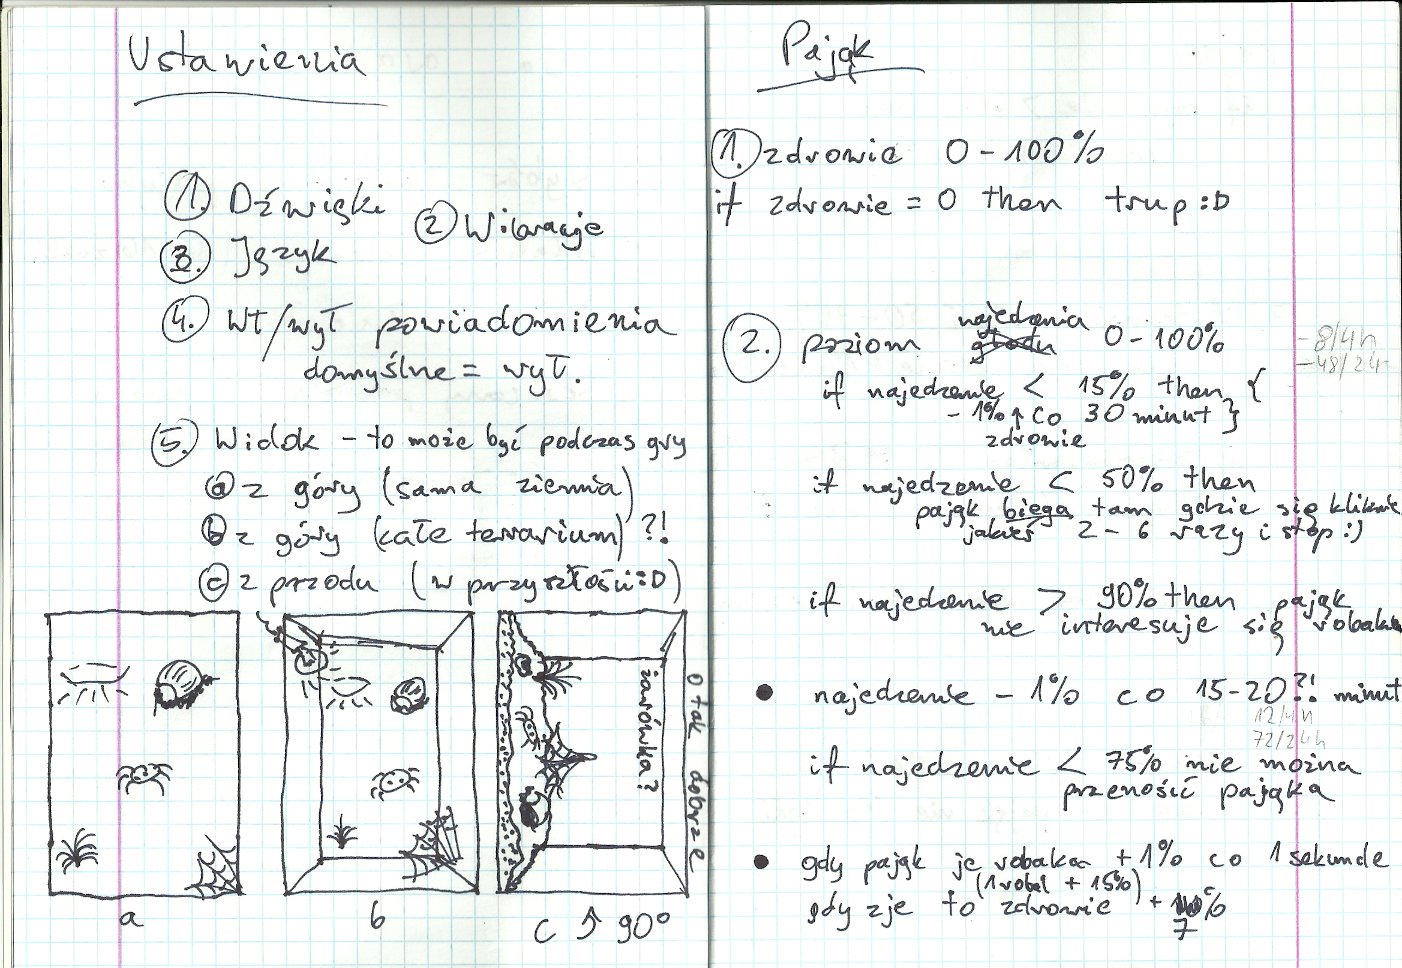 Ustawienia
1. Dźwięki
2 Wibracje
3. Język
4. Wł/wył powiadomienia
domyślne = wył.
5. Widok - to może być podczas gry
a z góry (sama ziemia)
b z góry (całe terrarium) ?!
c z przodu (w przyszłości :D)
żarówka?
o tak dobrze
a
b
c ↗ 90°
Pająk
1. zdrowie 0-100%
if zdrowie = 0 then trup :D
najedzenia
2. poziom głodu 0-100%
-8/4h
-48/24
if najedzenie < 15% then {
-1% ↑ co 30 minut }
zdrowie
if najedzenie < 50% then
pająk biega tam gdzie się kliknie
jakieś 2-6 razy i stop :)
if najedzenie > 90% then pająk
nie interesuje się robakiem
• najedzenie - 1% co 15-20?! minut
12/4h
72/24h
if najedzenie < 75% nie można
przenosić pająka
• gdy pająk je robaka + 1% co 1 sekunde
(1 robal + 15%)
gdy zje to zdrowie + %
7